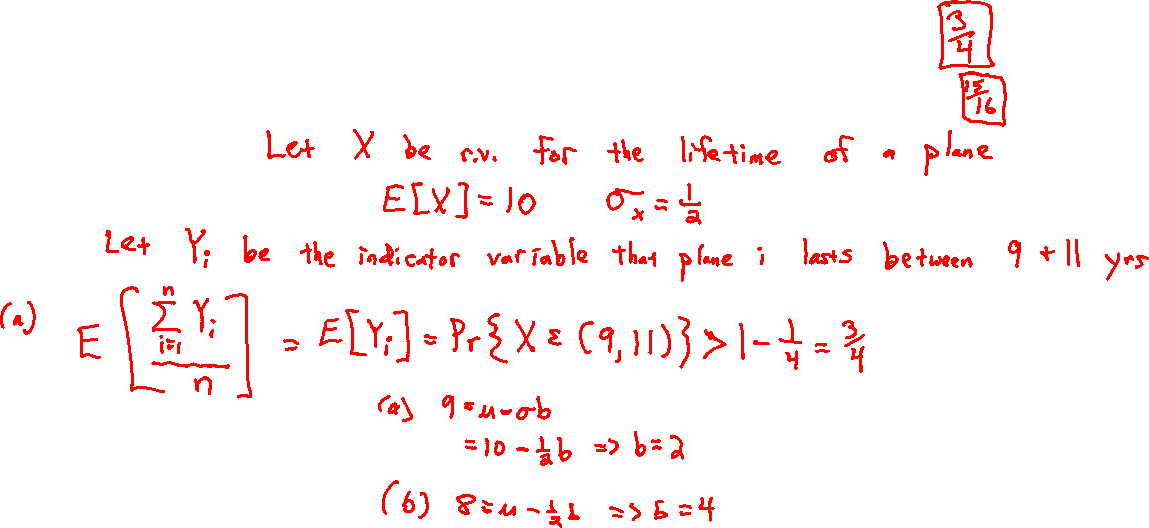 3/4
15/16
Let X be r.v. for the lifetime of a plane
E[X]=10 σ_x = 1/2
Let Y_i be the indicator variable that plane i lasts between 9 + 11 yrs
(a) E[∑_{i=1}^{n} Y_i / n] = E[Y_i] = Pr{X ε (9,11)} > 1 - 1/4 = 3/4
(a) 9 = μ - σb
= 10 - 1/2 b => b = 2
(b) 8 = μ - 1/2 b => b = 4